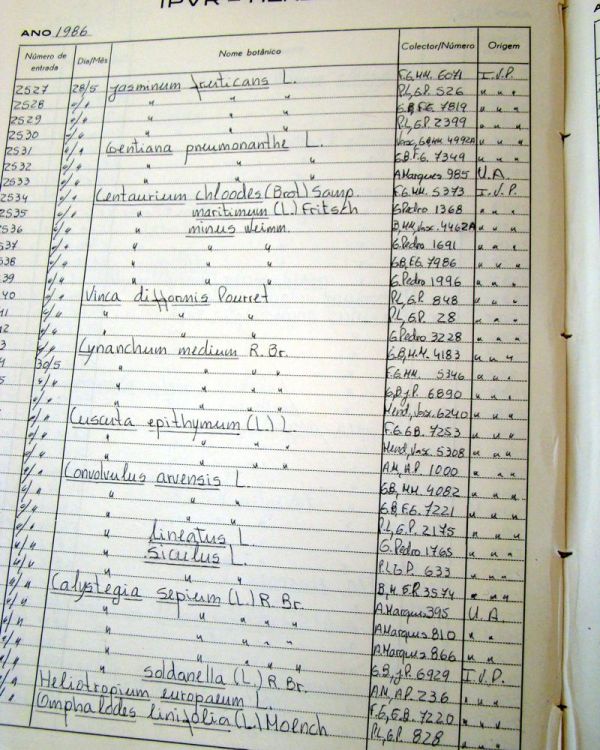 ANO 1986
Número de entrada Dia/Mês Nome botânico Colector/Número Origem
2527 28/5 Jasminum fruticans L. F.G, M.M. 6071 I.J.P.
2528 " " " " P.L, G.P. 526 " " "
2529 " " " " G.B, F.G. 7819 " " "
2530 " " " " P.L, G.P. 2399 " " "
2531 " Gentiana pneumonanthe L. 4992A " " "
2532 " " " " G.B, F.G. 7349 " "
2533 " " " " A.Marques 985 U.A.
2534 " Centaurium chloodes (Brot.) Samp. F.G, M.M. 5373 I.J.P.
2535 " " maritimum (L.) Fritsch G.Pedro 1368 " " "
2536 " " minus Weimm. B, M.M, Vasc. 4462A " " "
37 " " " " G.Pedro 1691 " " "
38 " " " " G.B, F.G. 7986 " " "
39 " " " " G.Pedro 1996 " " "
40 " Vinca difformis Pourret P.L, G.P. 848 " " "
41 " " " " P.L, G.P. 28 " " "
42 " " " " G.Pedro 3228 " " "
3 " Cynanchum medium R.Br. G.B, M.M. 4183 " " "
4 30/5 " " " F.G, M.M. 5346 " " "
5 " " " " G, B, J.P. 6890 " " "
" " " " Mend, Vasc. 6240 " " "
" Cuscuta epithymum (L.) L. F.G, G.B. 7253 " " "
" " " " Mend, Vasc. 5308 " " "
" " " " A.M, A.P. 1000 " " "
" Convolvulus arvensis L. G.B, M.M. 4082 " " "
" " " " G.B, F.G. 7221 " " "
" " " " P.L, G.P. 2175 " " "
" " lineatus L. G.Pedro 1765 " " "
" " siculus L. P.L, G.P. 633 " " "
" " " " B, M, F.P. 3574 " " "
" Calystegia sepium (L.) R.Br. A.Marques 395 U.A.
" " " " " A.Marques 810 " "
" " " " " A.Marques 866 " "
" " soldanella (L.) R.Br. G.B, J.P. 6929 I.J.P.
" Heliotropium europaeum L. A.M, A.P. 236 " " "
" Omphalodes linifolia (L.) Moench F.G, G.B. 7220 " " "
P.L, G.P. 828 " " "